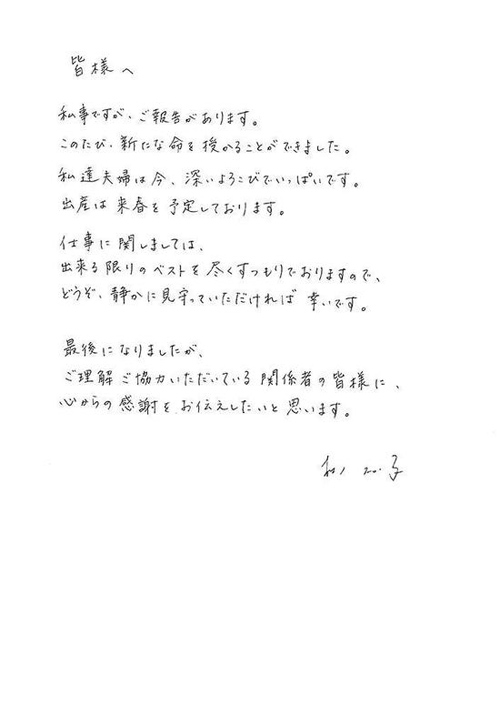 皆様へ
私事ですが、ご報告があります。
このたび、新たな命を授かることができました。
私達夫婦は今、深いよろこびでいっぱいです。
出産は来春を予定しております。
仕事に関しましては、
出来る限りのベストを尽くすつもりでおりますので、
どうぞ、静かに見守っていただければ幸いです。
最後になりましたが、
ご理解ご協力いただいている関係者の皆様に、
心からの感謝をお伝えしたいと思います。